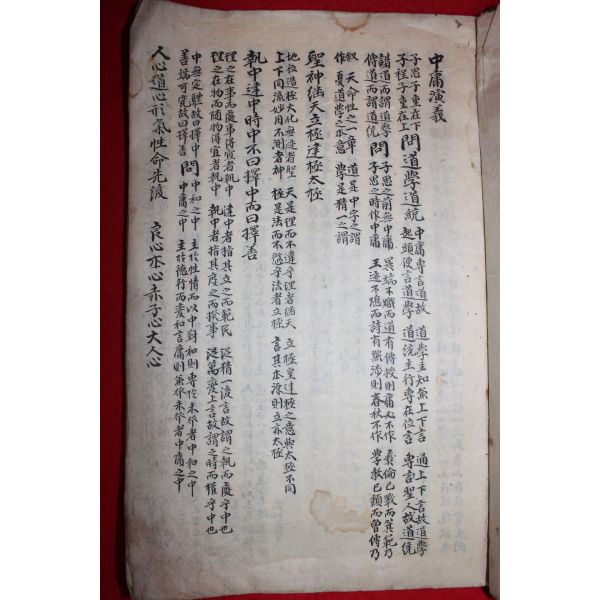 中庸演義
子思子重在下
子程子重在上
問道學道統
中庸專言道故 道學主知兼上下言 通上下言故道學
起頭便言道學 道統主行專在位言 專言聖人故道統
道而謂道學
傳道而謂道統
問
子思之前無中庸 異端不熾而道有傳授則庸不作 彝倫已斁而箕範乃
子思之時作中庸 王迹不熄而詩有黜陟則春秋不作 學教已頹而曾傳乃
叙天命性之一章 道是中字之謂
作憂道學之本意 學是精一之謂
聖神繼天立極建極太極
地位造極大化無迹者聖 天是理而不違乎理者繼天 立極皇建極之意與太極不同
上下同流妙用不測者神 極是法而不愆乎法者立極 言其本源則立亦太極
執中建中時中不曰擇中而曰擇善
理之在事而處事得宜者執中 建中者指其立之而範民 從精一後言故謂之執而處乎中也
理之在物而隨物得宜者執中 執中者指其處之而揆事 從萬變上言故謂之時而權乎中也
中無定體故曰擇中
善端可見故曰擇善
問
中和之中 主於性情而以中對和則專於未發者中和之中
中庸之中 主於德行而和言庸則兼於未發者中庸之中
人心道心形氣性命先後 良心本心赤子心大人心